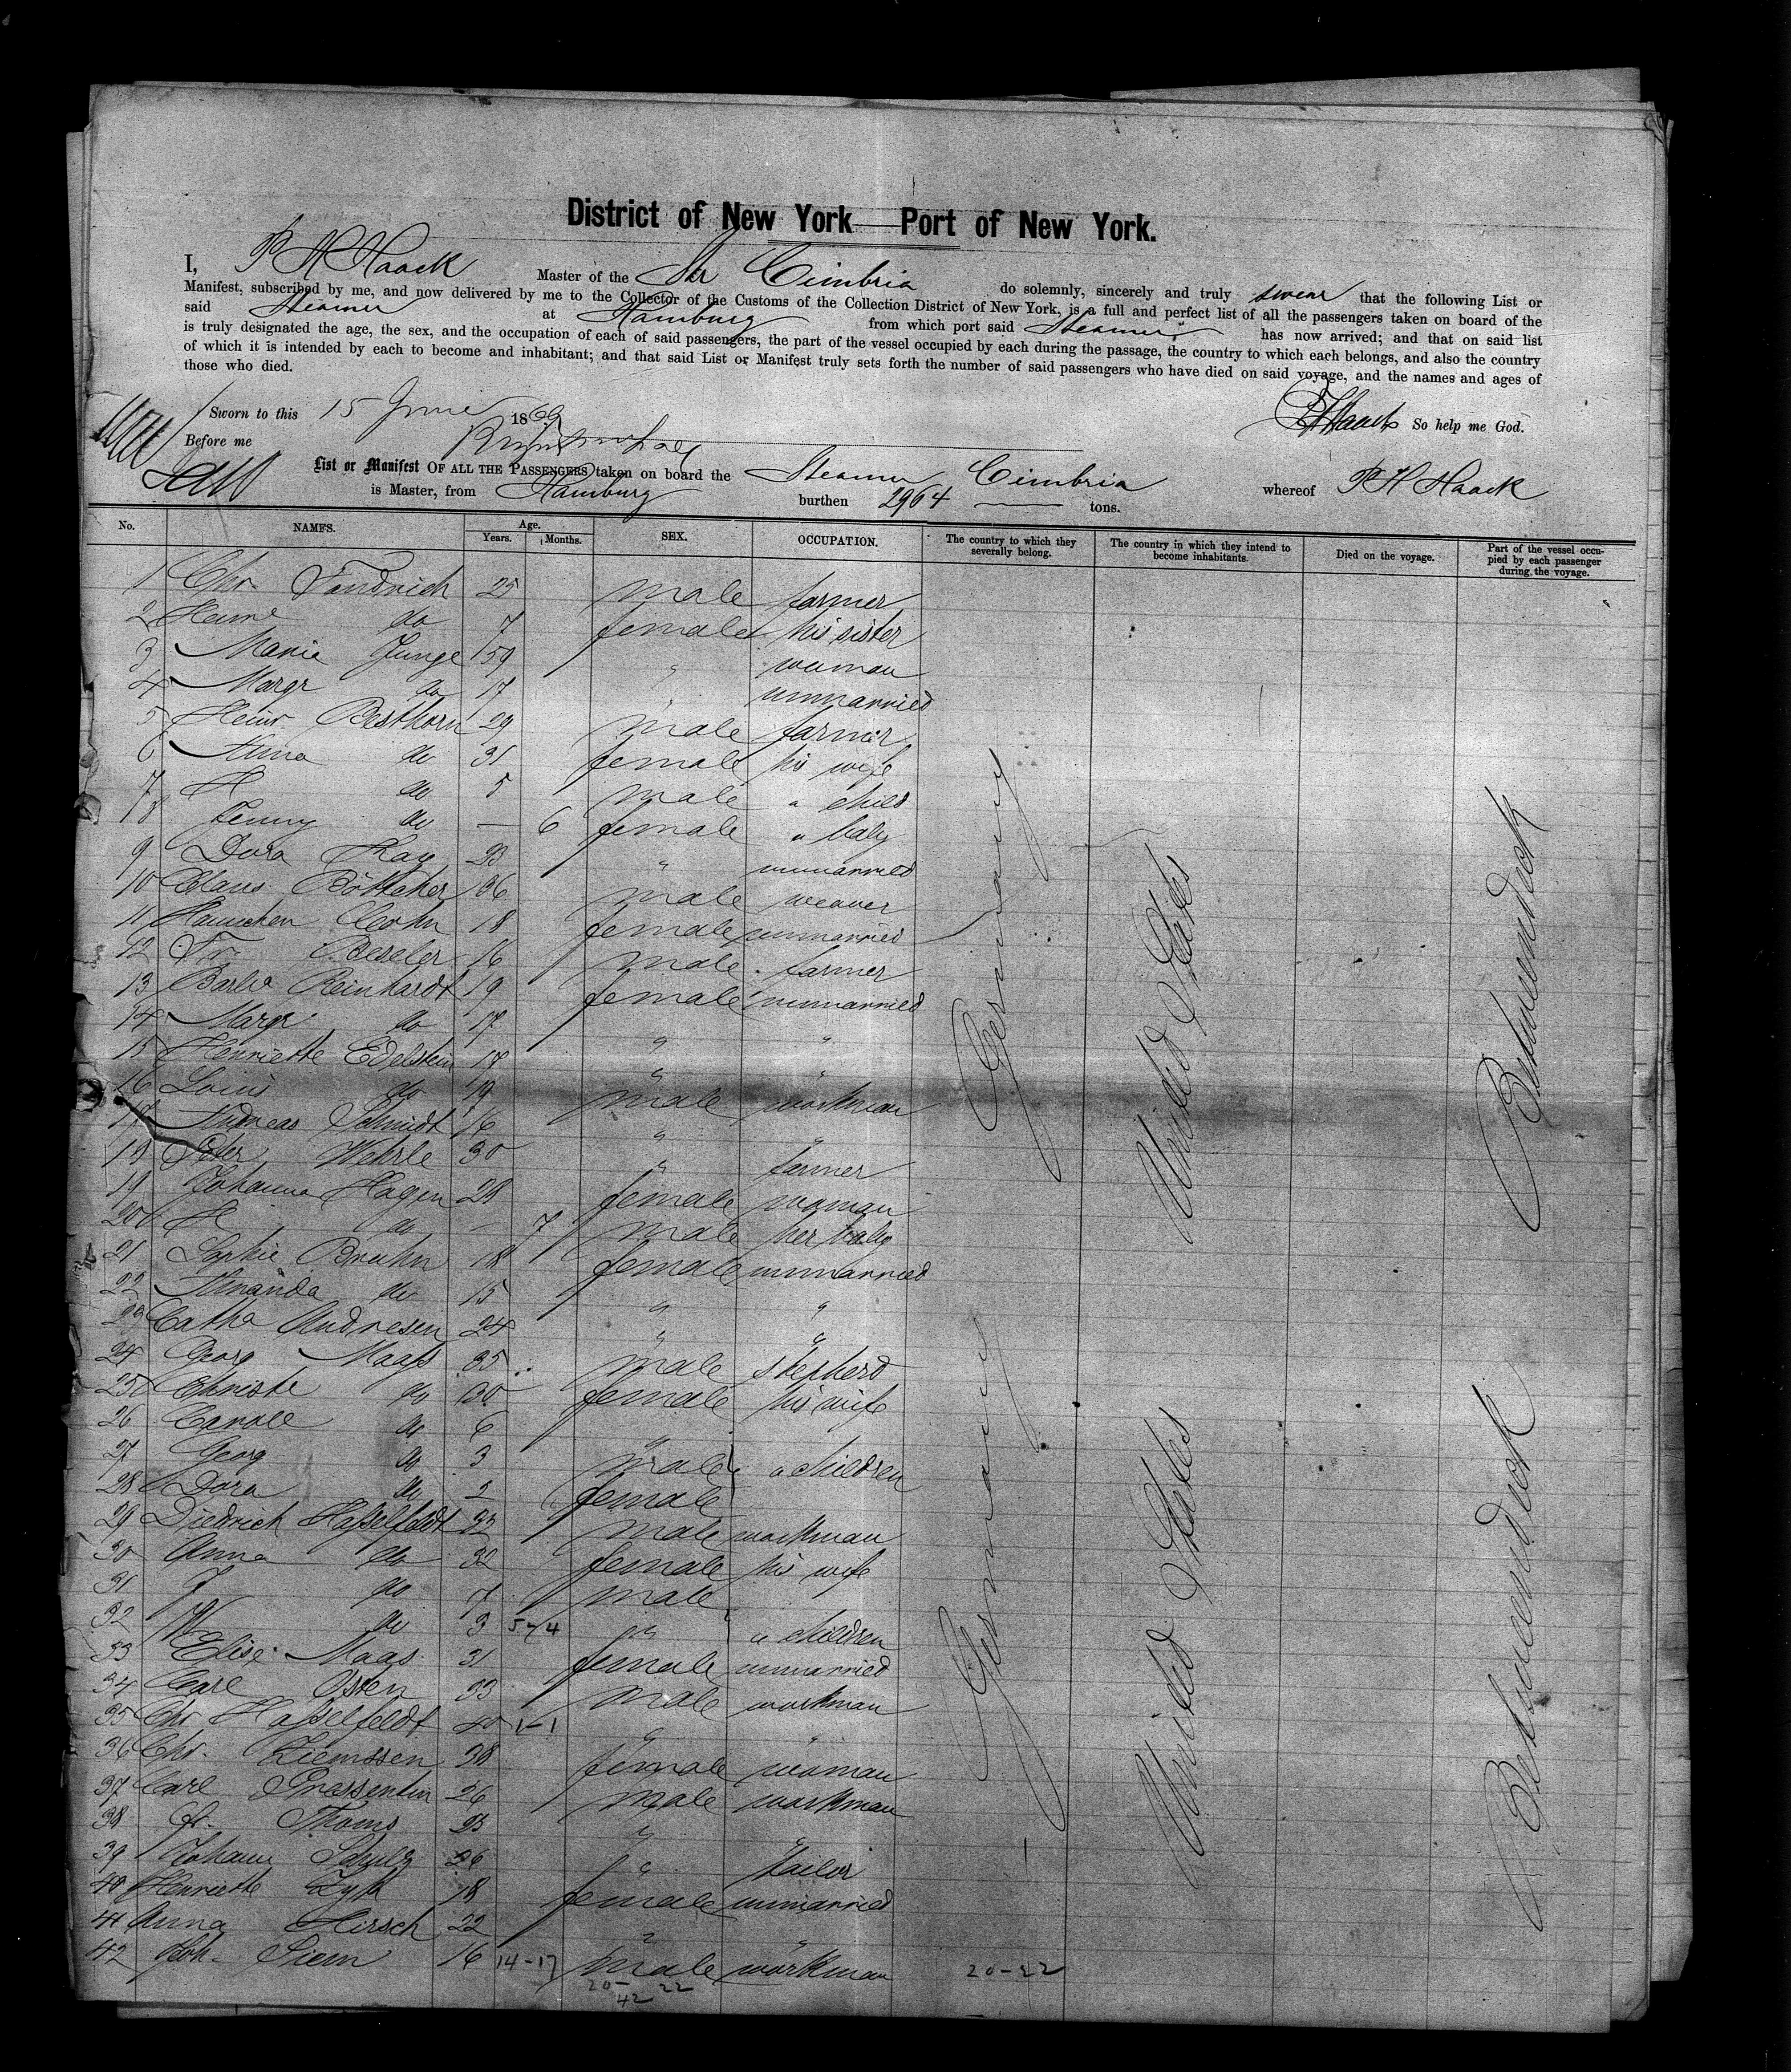 District of New York — Port of New York.
I, P H Haack Master of the Str Cimbria do solemnly, sincerely and truly swear that the following List or
Manifest, subscribed by me, and now delivered by me to the Collector of the Customs of the Collection District of New York, is a full and perfect list of all the passengers taken on board of the
said Steamer at Hamburg from which port said Steamer has now arrived; and that on said list
is truly designated the age, the sex, and the occupation of each of said passengers, the part of the vessel occupied by each during the passage, the country to which each belongs, and also the country
of which it is intended by each to become and inhabitant; and that said List or Manifest truly sets forth the number of said passengers who have died on said voyage, and the names and ages of
those who died.
Sworn to this 15 June 1869 PHHaack So help me God.
Before me
List or Manifest OF ALL THE PASSENGERS taken on board the Steamer Cimbria whereof P H Haack
is Master, from Hamburg burthen 2964 tons.
No. NAMES. Age. Years. Months. SEX. OCCUPATION. The country to which they severally belong. The country in which they intend to become inhabitants. Died on the voyage. Part of the vessel occupied by each passenger during the voyage.
1 Chr. Fandrich 25 male farmer
2 do 7 female his sister
3 Marie Junge 59 " woman
4 Margr do 17 unmarried
5 Heinr Besthorn 29 male farmer
6 Anna do 31 female his wife
7 H do 5 male " child
8 Jenny do — 6 female " baby
9 Dora Kay 23 " unmarried
10 Claus Böttcher 36 male weaver
11 Hannchen Cohn 18 female unmarried
12 Fr. Beseler 16 male farmer
13 Barba Reinhardt 19 female unmarried
14 Margr do 17 " "
15 Henriette Edelstein 17 " "
16 Louis do 19 male workman
17 Andreas Schmidt 16 " "
18 Peter Wehrle 30 " farmer
19 Johanna Hagen 28 female woman
20 H do — 7 male her baby
21 Sophie Bruhn 18 female unmarried
22 Amanda do 15 " "
23 Catha Andresen 24 " "
24 Georg Maaß 35 male shepherd
25 Christe do 30 female his wife
26 do 6 "
27 Georg do 3 male " children
28 Dora do 2 female
29 Diedrich Haßelfeldt 32 male workman
30 Anna do 32 female his wife
31 J do 7 male
32 W do 3 5-4 " " children
33 Elise Maas 31 female unmarried
34 Carl Osten 33 male workman
35 Chr Haßelfeldt 40 1-1 " "
36 Chr. Ziemssen 38 female woman
37 Carl 26 male workman
38 Fr. Thoms 25 " "
39 Johann Schulz 26 " tailor
40 Henriette 18 female unmarried
41 Anna Hirsch 22 " "
42 Joh. Siem 16 14-17 male workman 20-22
20-22
42
Germany
United States
Betweendeck
Germany
United States
Betweendeck